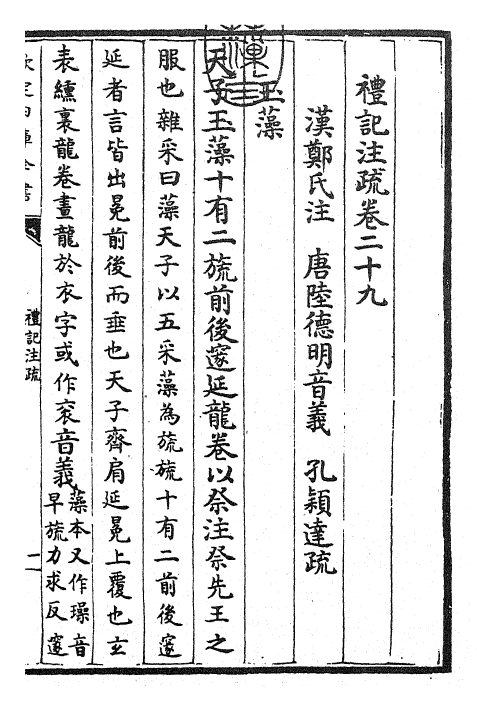 禮記注疏卷二十九
漢鄭氏注　唐陸德明音義　孔穎達疏
玉藻
天子玉藻十有二旒前後邃延龍卷以祭注祭先王之
服也雜采曰藻天子以五采藻為旒旒十有二前後邃
延者言皆出冕前後而垂也天子齊肩延冕上覆也玄
表纁裏龍卷畫龍於衣字或作衮音義藻本又作璪音
早旒力求反邃
欽定四庫全書
禮記注疏